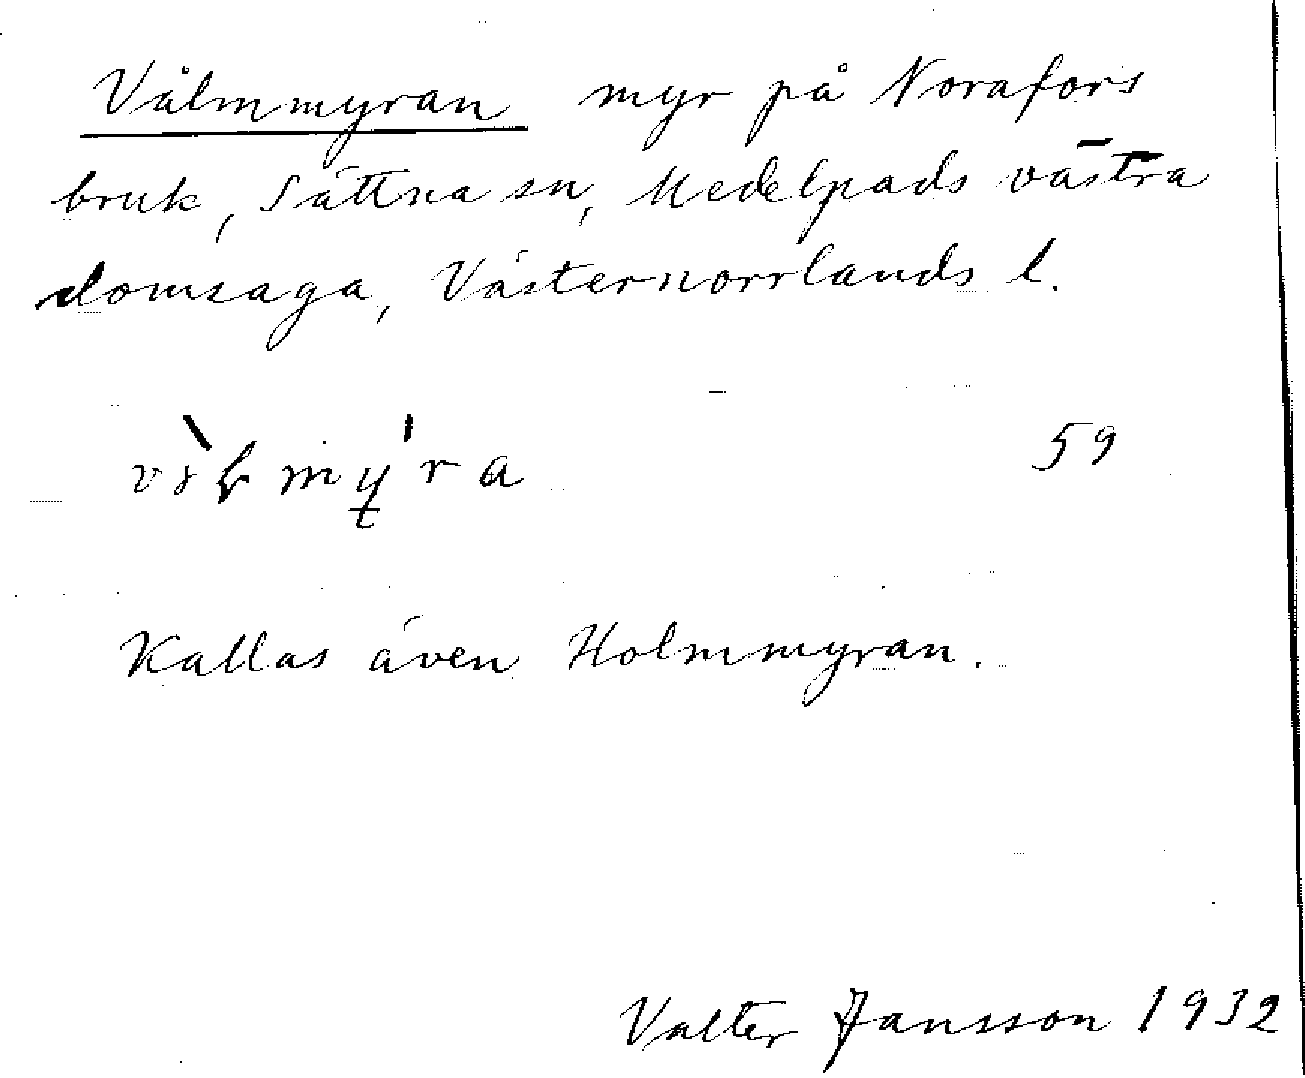 Vålmmyran myr på Norafors
bruk, Sättna sn, Medelpads västra
domsaga, Västernorrlands l.
59
Kallas även Holmmyran.
Valter Jansson 1932